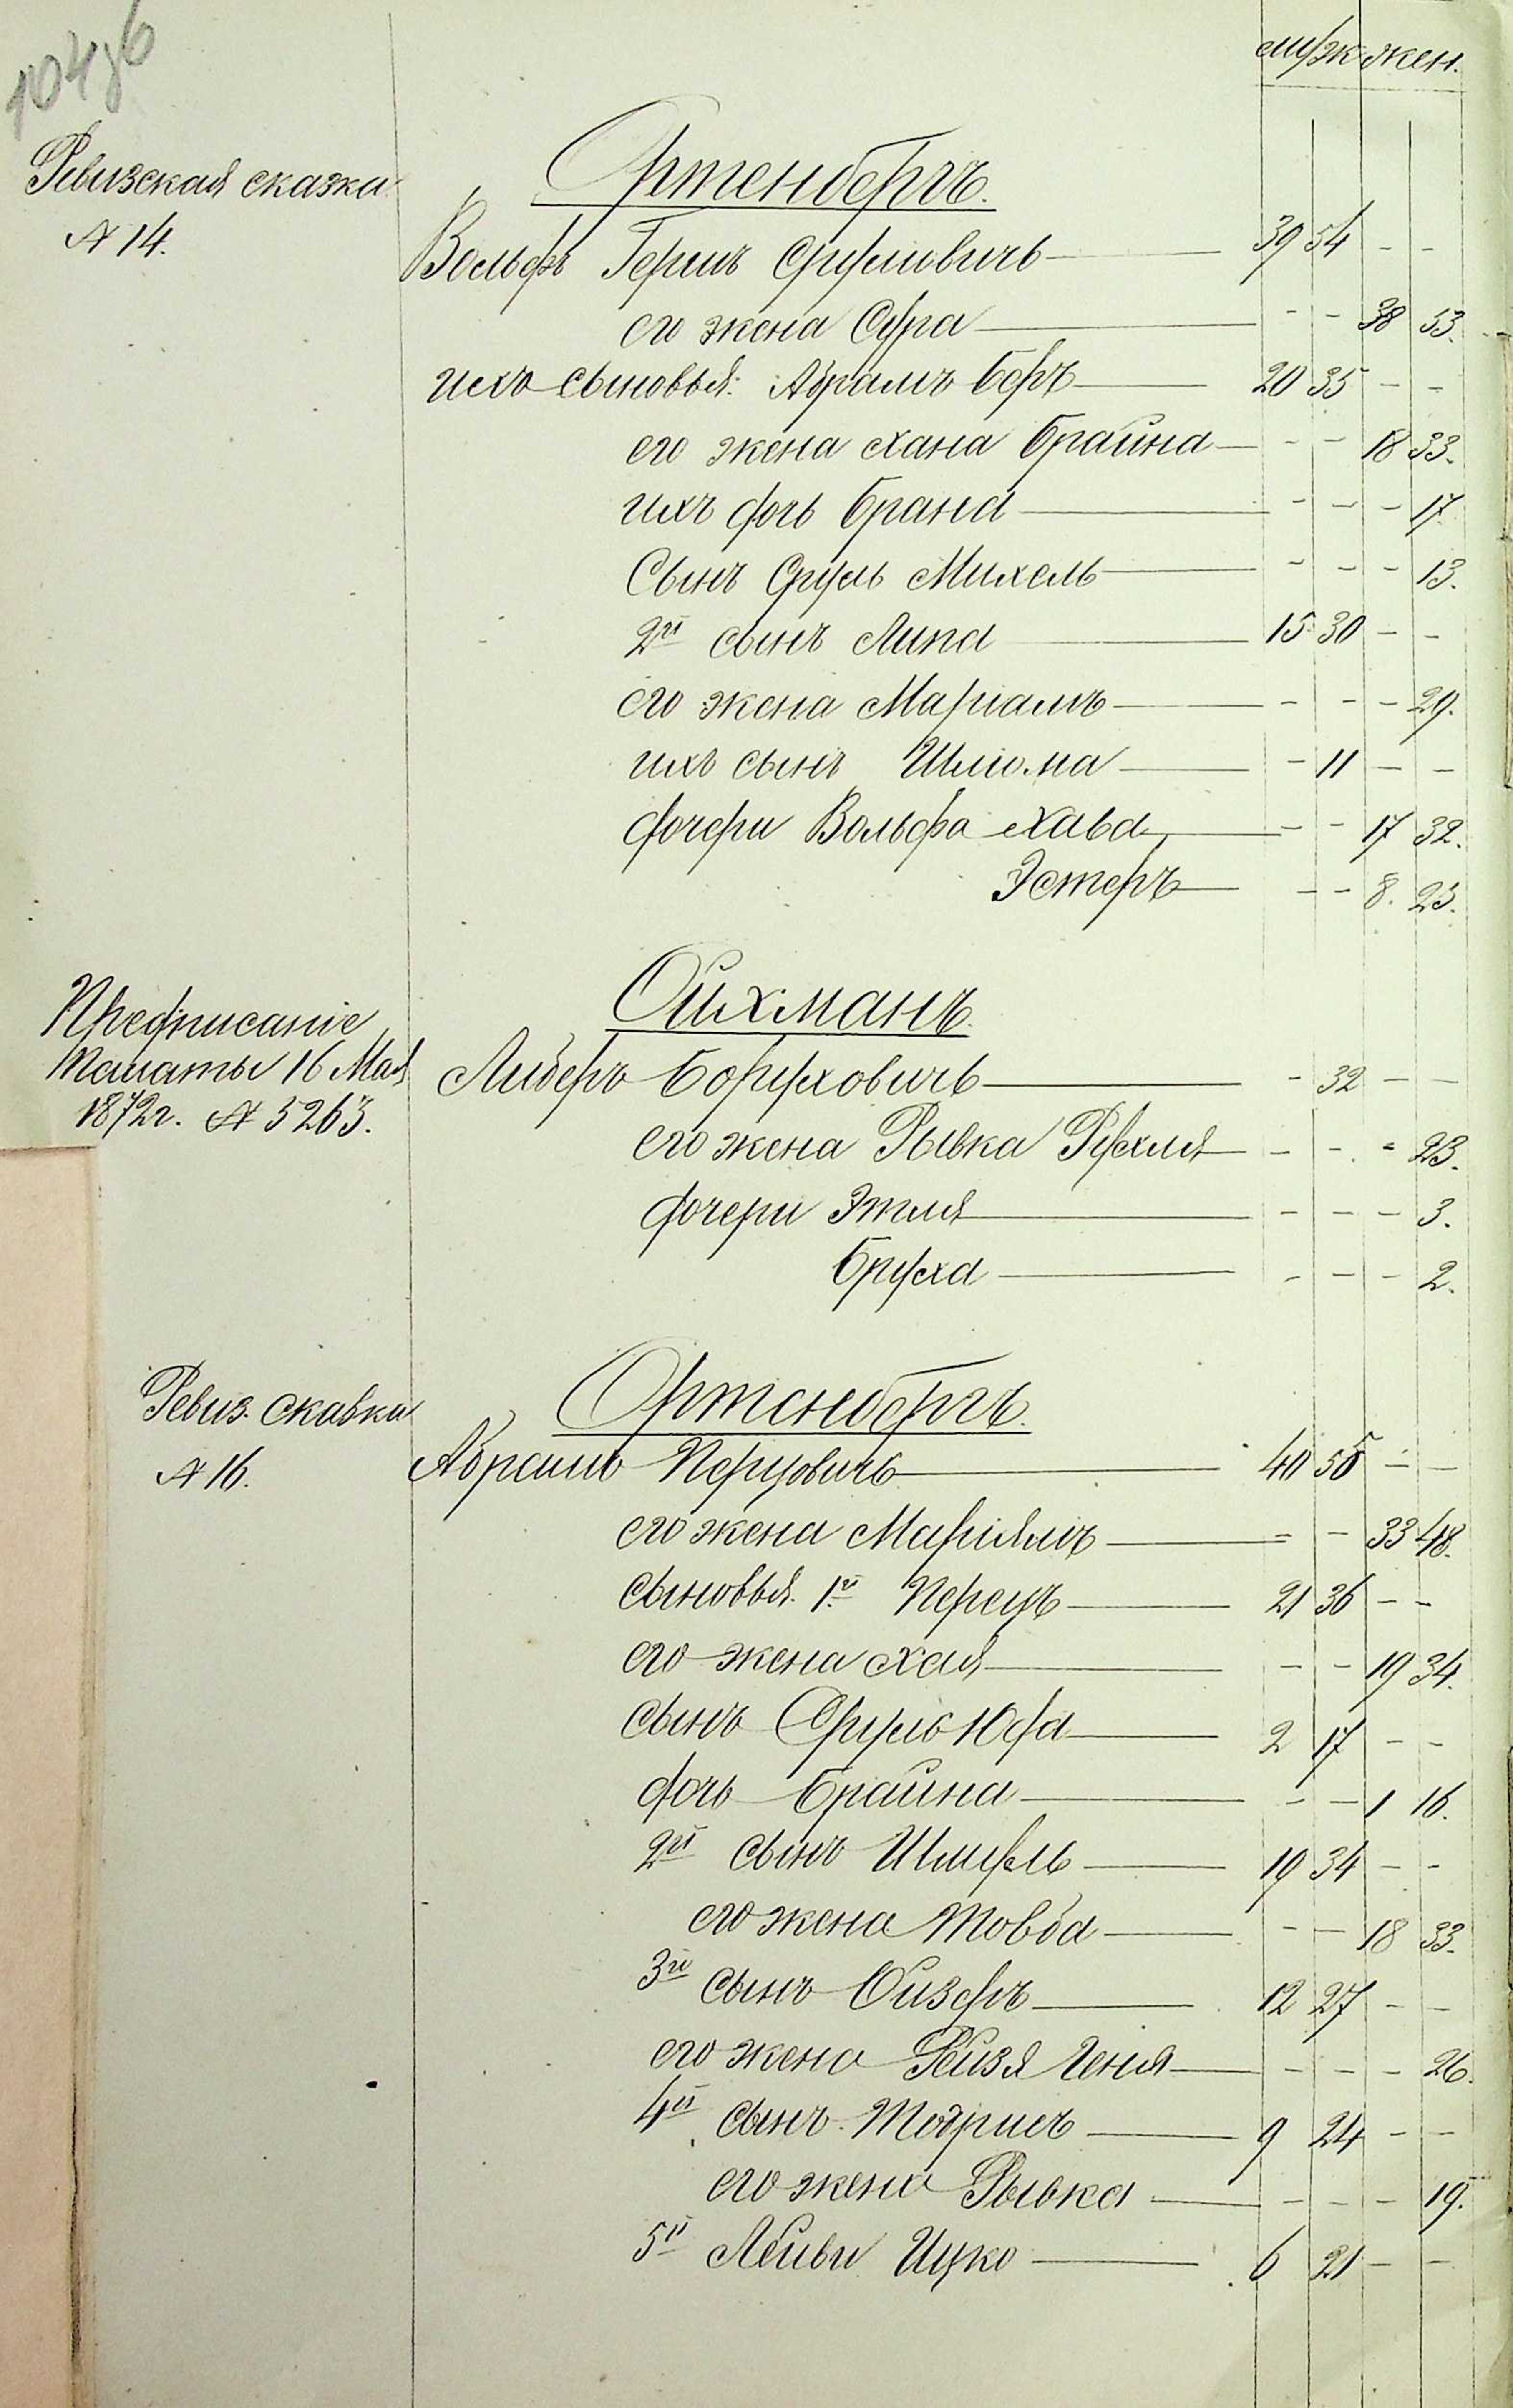 муж. жен.
Ревизская сказка
№ 14.
Ортенбергъ.
Вольфъ Гершъ Срулиовичъ — 39 54 - -
его жена Сура — - - 38 53.
ихъ сыновья: Абрамъ Беръ — 20 35 - -
его жена Хана Брайна — - - 18 33.
ихъ дочь Брана — - - - 17.
Сынъ Сруль Михель — - - - 13.
2й сынъ Липа — 15 30 - -
его жена Маріамъ — - - - 29.
ихъ сынъ Шлиома — - 11 - -
дочери Вольфа Хава — - - 17 32.
Эстеръ — - - 8. 23.
Ойхманъ.
Предписаніе
Палаты 16 Мая
1872г. № 5263.
Либеръ Боруховичъ — - 32 - -
его жена Рывка Рухля — - - - 23.
дочери Этля — - - - 3.
Бруха — - - - 2.
Ревиз. сказка
№ 16.
Ортенбергъ.
Абрамъ Перцовичъ — 40 55 - -
его жена Маріямъ — - - 33 48.
сыновья 1й Перецъ — 21 36 - -
его жена Хая — - - 19 34.
сынъ Сруль Юда — 2 17 - -
дочь Брайна — - - 1 16.
2й сынъ Шмуль — 19 34 - -
его жена Товба — - - 18 33.
3й сынъ Ойзеръ — 12 27 - -
его жена Рейзя Геня — - - - 26.
4й сынъ Тодрисъ — 9 24 - -
его жена Рывка — - - - 19.
5й Лейви Ицко — 6 21 - -